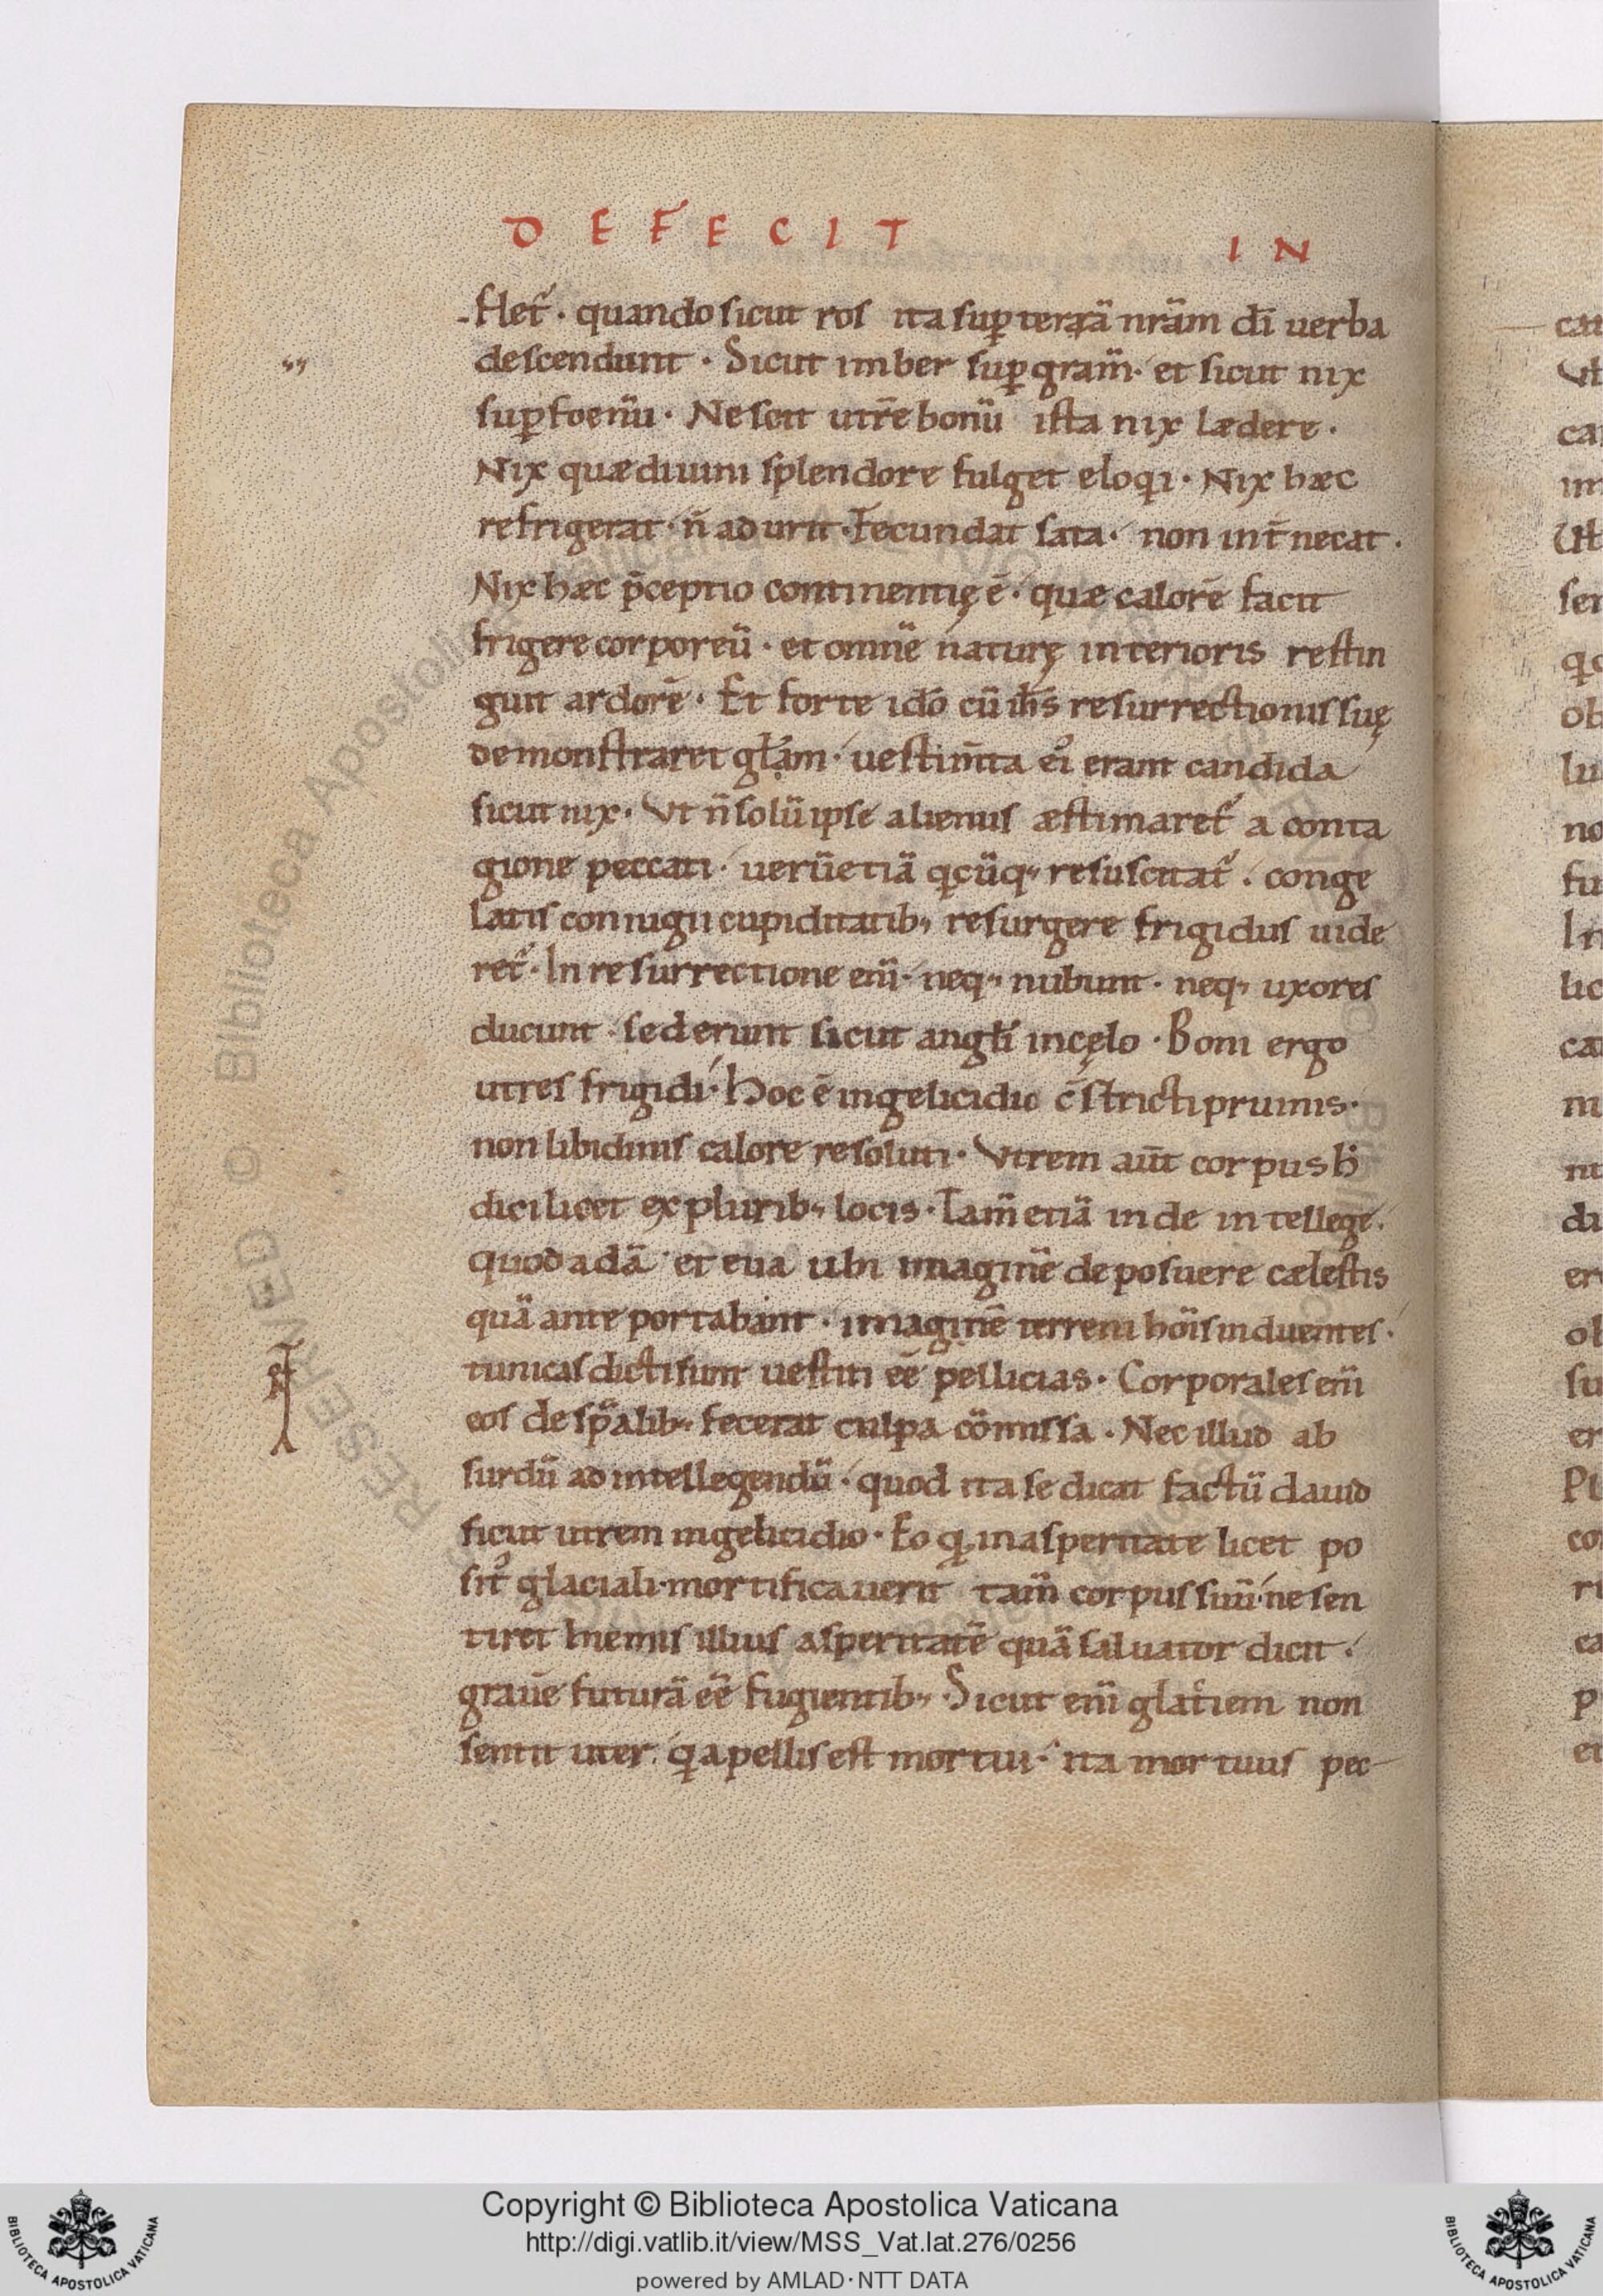 DEFECIT IN
flet᷑ · quando sicut ros ita sup̱ terrā nr̄am dī uerba
descendunt · Sicut imber sup̱ gram̄ · et sicut nix
sup̱ foenū · Nescit utrē bonū ista nix lædere ·
Nix quæ diuini splendore fulget eloqi · Nix hæc
refrigerat · n̄ adurit · Fecundat sata · non int̄ necat ·
Nix hæc p̄ceptio continentię ē · quæ calorē facit
frigere corporeū · et omnē naturę interioris restin
guit ardorē · Et forte idō cū ih̄s resurrectionis suę
demonstraret gl̄am · uestim̄ta ei᷒ erant candida
sicut nix · Vt n̄ solū ipse alienus æstimaret᷑ a conta
gione peccati · uerū etiā qcūq; resuscitat᷑ · conge
latis coniugii cupiditatib; resurgere frigidus uide
ret᷑ · In resurrectione eni̅ · neq; nubunt · neq; uxores
ducunt · sed erunt sicut angl̄i in cęlo · Boni ergo
utres frigidi · Hoc ē in gelicidio c̄stricti pruinis ·
non libidinis calore resoluti · Vtrem aūt corpus h̄
dici licet ex plurib; locis · Tam̄ etiā inde intellege ·
quod adā et eua ubi imaginē deposuere cælestis
quā ante portabant · imaginē terreni hōis induentes ·
tunicas dicti sunt uestiti eē pellicias · Corporales eni̅
eos de sp̄alib; fecerat culpa cōmissa · Nec illud ab
surdū ad intellegendū · quod ita se dicat factū dauid
sicut utrem in gelicidio · Eo q̱ in asperitate licet po
sit᷒ glaciali · mortificauerit tam̄ corpus suū · ne sen
tiret hiemis illius asperitatē quā saluator dicit ·
grauē futurā eē fugientib; · Sicut eni̅ glatiem non
sentit uter · q̱a pellis est mortui · ita mortuus pec-
Copyright © Biblioteca Apostolica Vaticana
http://digi.vatlib.it/view/MSS_Vat.lat.276/0256
powered by AMLAD·NTT DATA
BIBLIOTECA APOSTOLICA VATICANA
BIBLIOTECA APOSTOLICA VATICANA